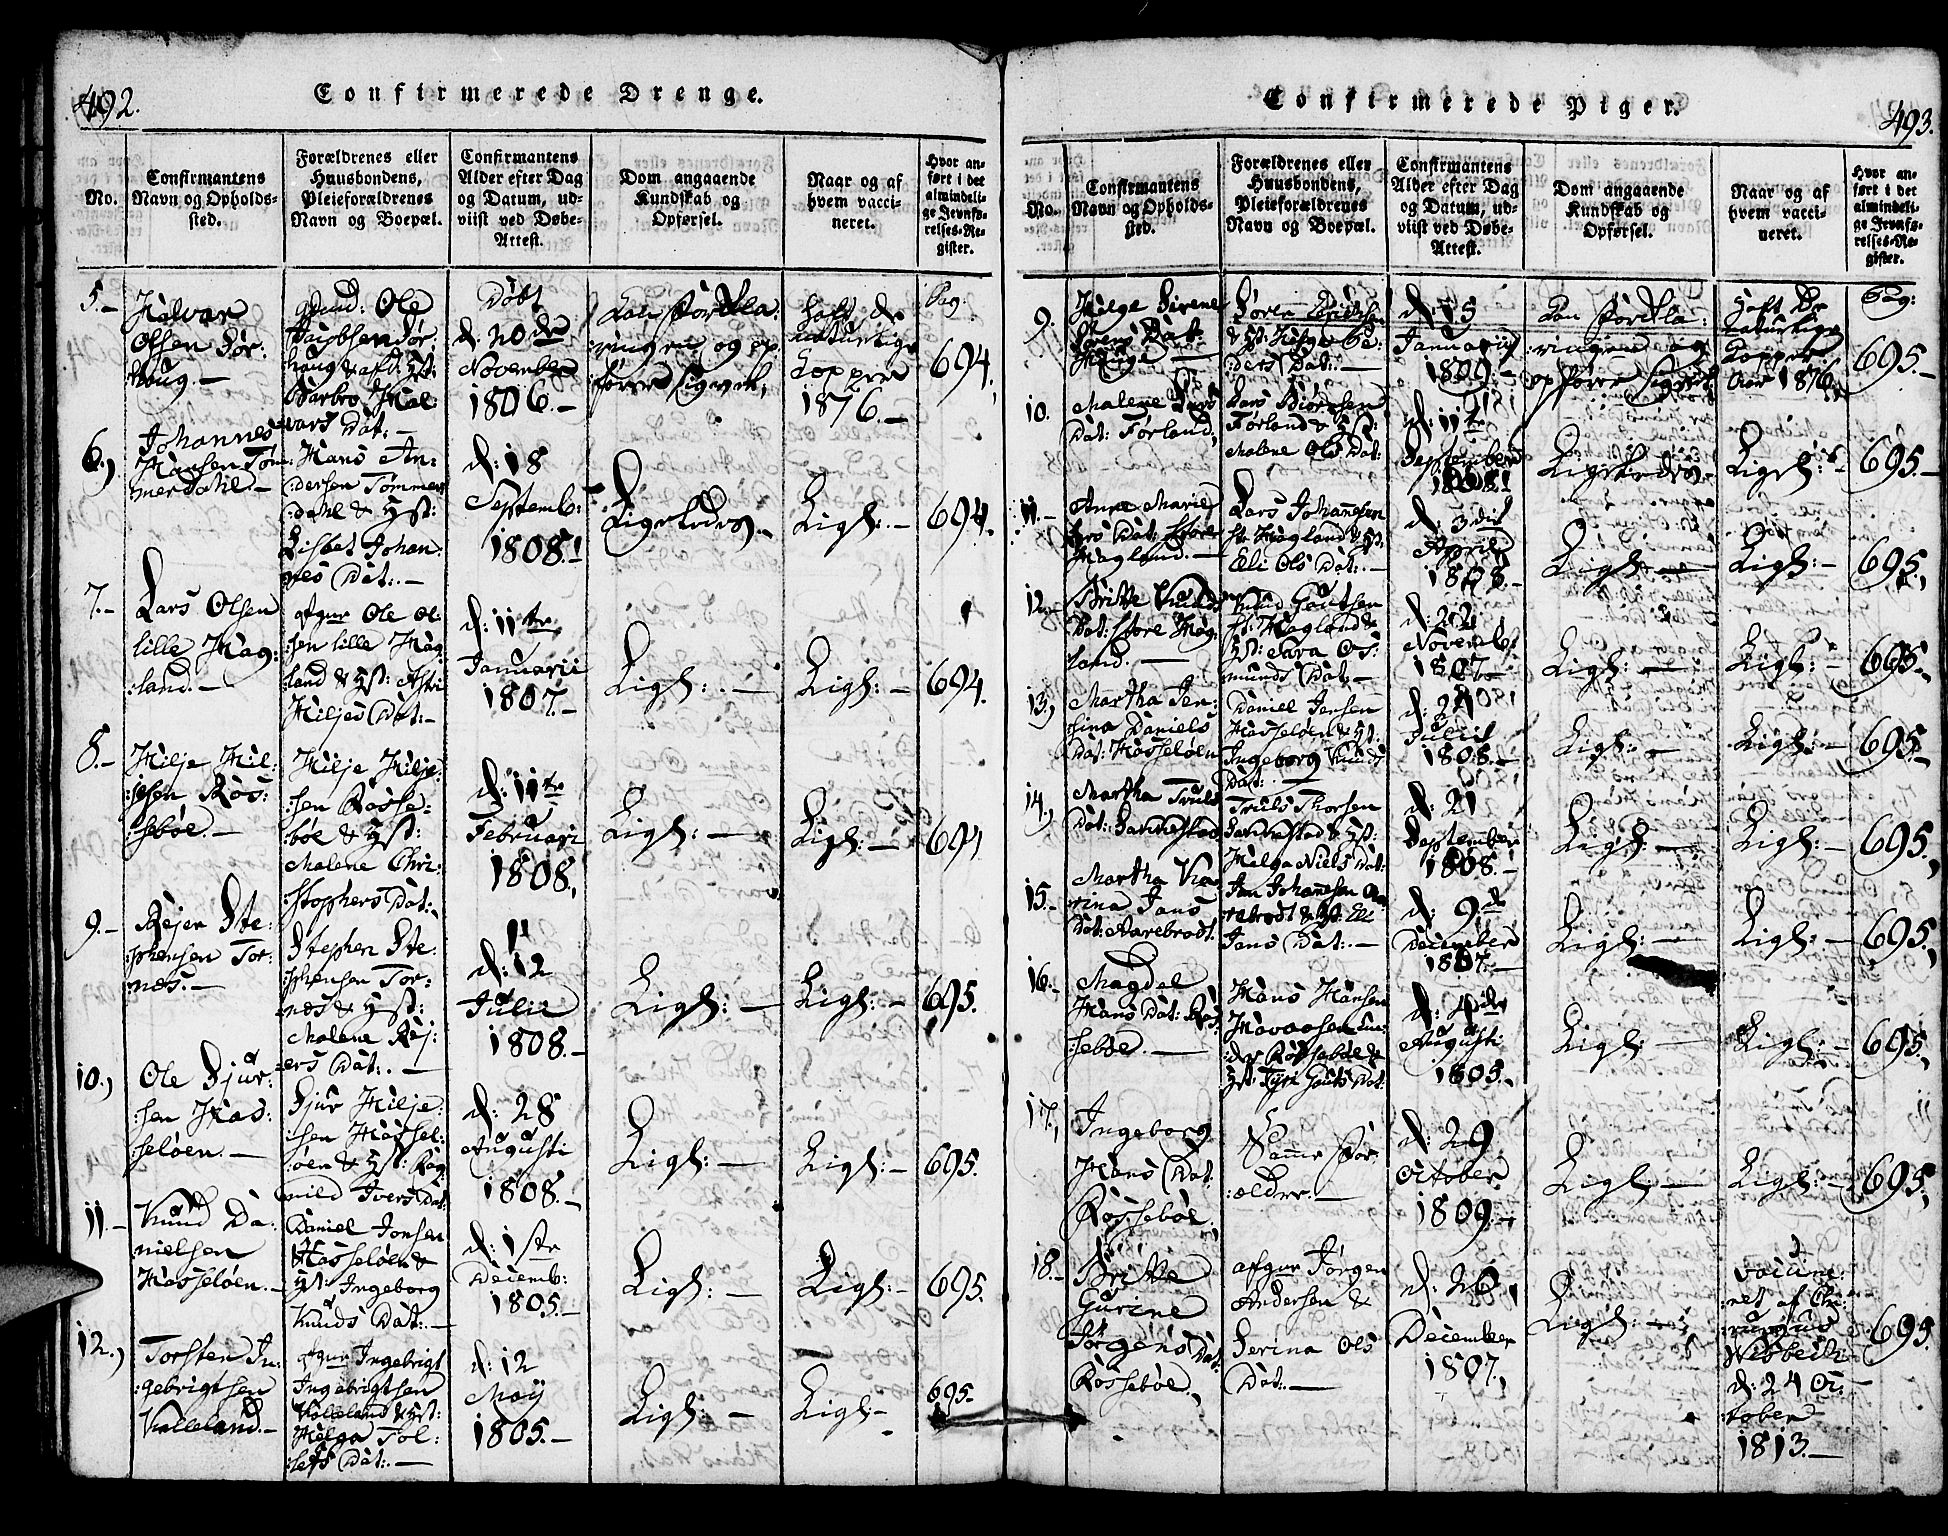 492.
Confirmerede Drenge.
No.
Confirmantens
Navn og Opholds-
sted.
Forældrenes eller
Huusbondens,
Pleieforældrenes
Navn og Boepæl.
Confirmantens
Alder efter Dag
og Datum, ud-
viist ved Døbe-
Attest.
Dom angaaende
Kundskab og
Opførsel.
Naar og af
hvem vacci-
neret.
Hvor an-
ført i det
almindeli-
ge Jevnfø-
relses-Re-
gister.
5.-
Halvar
Olsen Sør-
houg.-
Ole
Jacobsen Sør-
houg & afd. Hst:
Barbro Hal-
vars Dat:-
Døbt
d: 20de
November
1806.-
haft de
naturlige
Kopper
1876.-
Pag:
694,
6.,
Johannes
Hansen Tøm-
merdahl.-
Hans An-
dersen Tømmer-
dahl & Hst:
Lisbet Johan-
nes Dat:-
d: 18
Septemb:
1808!
Ligeledes.-
Ligl:-
694.
7.-
Lars Olsen
lille Hag-
land.-
afgnr Ole Ol-
sen lille Hag-
land & Hst: Astri
Hiljes Dat:-
d: 11te
Januarii
1807.-
Ligl:.-
Ligl:-
694.
8.-
Hilje Hil-
jesen Røs-
sebøe.-
Hilje Hilje-
sen Røsse-
bøe & Hst:
Malene Chri-
stophers Dat:-
d: 11te
Februari
1808.,
Ligl:-
Ligl:-
694
9.-
Rejer Ste-
phensen Tor-
nes.-
Stephen Ste-
phensen Tor-
nes & Hst:
Malene Rej-
ers Dat:.-
d: 12
Julii
1808.-
Ligl:-
Ligl:-
695.
10.,
Ole Sjur-
sen Has-
seløen.-
Sjur Hilje-
sen Hassel-
øen & Hst: Rag-
nild Ivers Dat:
d: 28
Augusti
1808.-
Ligl:-
Ligl:-
695.
11.-
Knud Da-
nielsen
Hasseløen.-
Daniel Jonsen
Hasseløen &
Hst: Ingeborg
Knuds Dat:-
d: 1ste
Decemb:
1805.-
Ligl:-
Ligl:-
695.
12.,
Torsten In-
gebrigtsen
Kalleland.-
afgnr Ingebrigt
Ingebrigtsen
Kalleland & Hst:
Helga Tol-
lefs Dat:-
d: 12
May
1805.-
Ligl:-
Ligl:-
695.-
Confirmerede Piger.
493.
No.
Confirmantens
Navn og Opholds-
sted.
Forældrenes eller
Huusbondens,
Pleieforældrenes
Navn og Boepæl.
Confirmantens
Alder efter Dag
og Datum, ud-
viist ved Døbe-
Attest.
Dom angaaende
Kundskab og
Opførsel.
Naar og af
hvem vacci-
neret.
Hvor an-
ført i det
almindeli-
ge Jevnfø-
relses-Re-
gister.
9.
Helge Sirene
Sørens Dat:
d: 15
Januarii
1809.-
haft de
naturlige
Kopper
Aar 1876.
Pag:
695.-
10.
Malene Lars
Dat: Førland,
Lars Biørnsen
Førland & Hst:
Malene Ols Dat:
d: 11te
September
1808!
Ligeledes.-
Ligel:-
695.-
11.-
Anne Marie
Lars Dat: store
Hagland.-
Lars Johannesen
st: Hagland & Hst:
Eli Ols Dat:-
d: 3die
April
1808.-
Ligl:-
Ligl:-
695.,
12.
Britte Knuds
Dat: store Hag-
land.-
Knud Goutsen
st: Hagland &
Hst: Sara Os-
munds Dat:-
d: 22
Novemb:
1807.-
Ligl:-
Ligl:-
695.-
13.,
Martha Jen-
sina Daniels
Dat: Hasseløen
Daniel Jensen
Hasseløen & Hst:
Ingeborg Knuds
Dat:-
Julii
1808.-
Ligl:-
Ligl:-
695.-
14.,
Martha Truls
Dat: Sannestad
Truls Thorsen
Sannestad & Hst:
Helga Niels Dat:
d: 21
September
1808!
Ligl:-
Ligl:-
695.,
15.-
Martha Ka-
rina Jans
Dat: Aarebrodt.
Jan Johannesen Aa-
rebrodt & Hst: Eli
Jans Dat:-
d: 9de
December
1807.-
Ligl:-
Ligl:-
695.,
16.-
Magdel
Hans Dat: Røs-
sebøe.-
Hans Hansen
Røssebøe &
Hst: Gouts Dat:
d: 4de
Augusti
1805.
Ligl:-
Ligl:-
695.,
17.,
Ingeborg
Hans Dat:
Røssebøe.,
Samme For-
ældre.-
d: 29
October
1809.-
Ligl:-
Ligl:-
695.,
18.-
Britte
Gurine
Jørgens Dat:
Røssebøe.,
afgnr Jørgen
Andersen &
Serina Ols
Dat:-
d: 26,
December
1807.,
Ligl:-
vaccine-
ret af Chi-
rurgus
Wisbech
d: 24 Oc-
tober
1813.-
695.